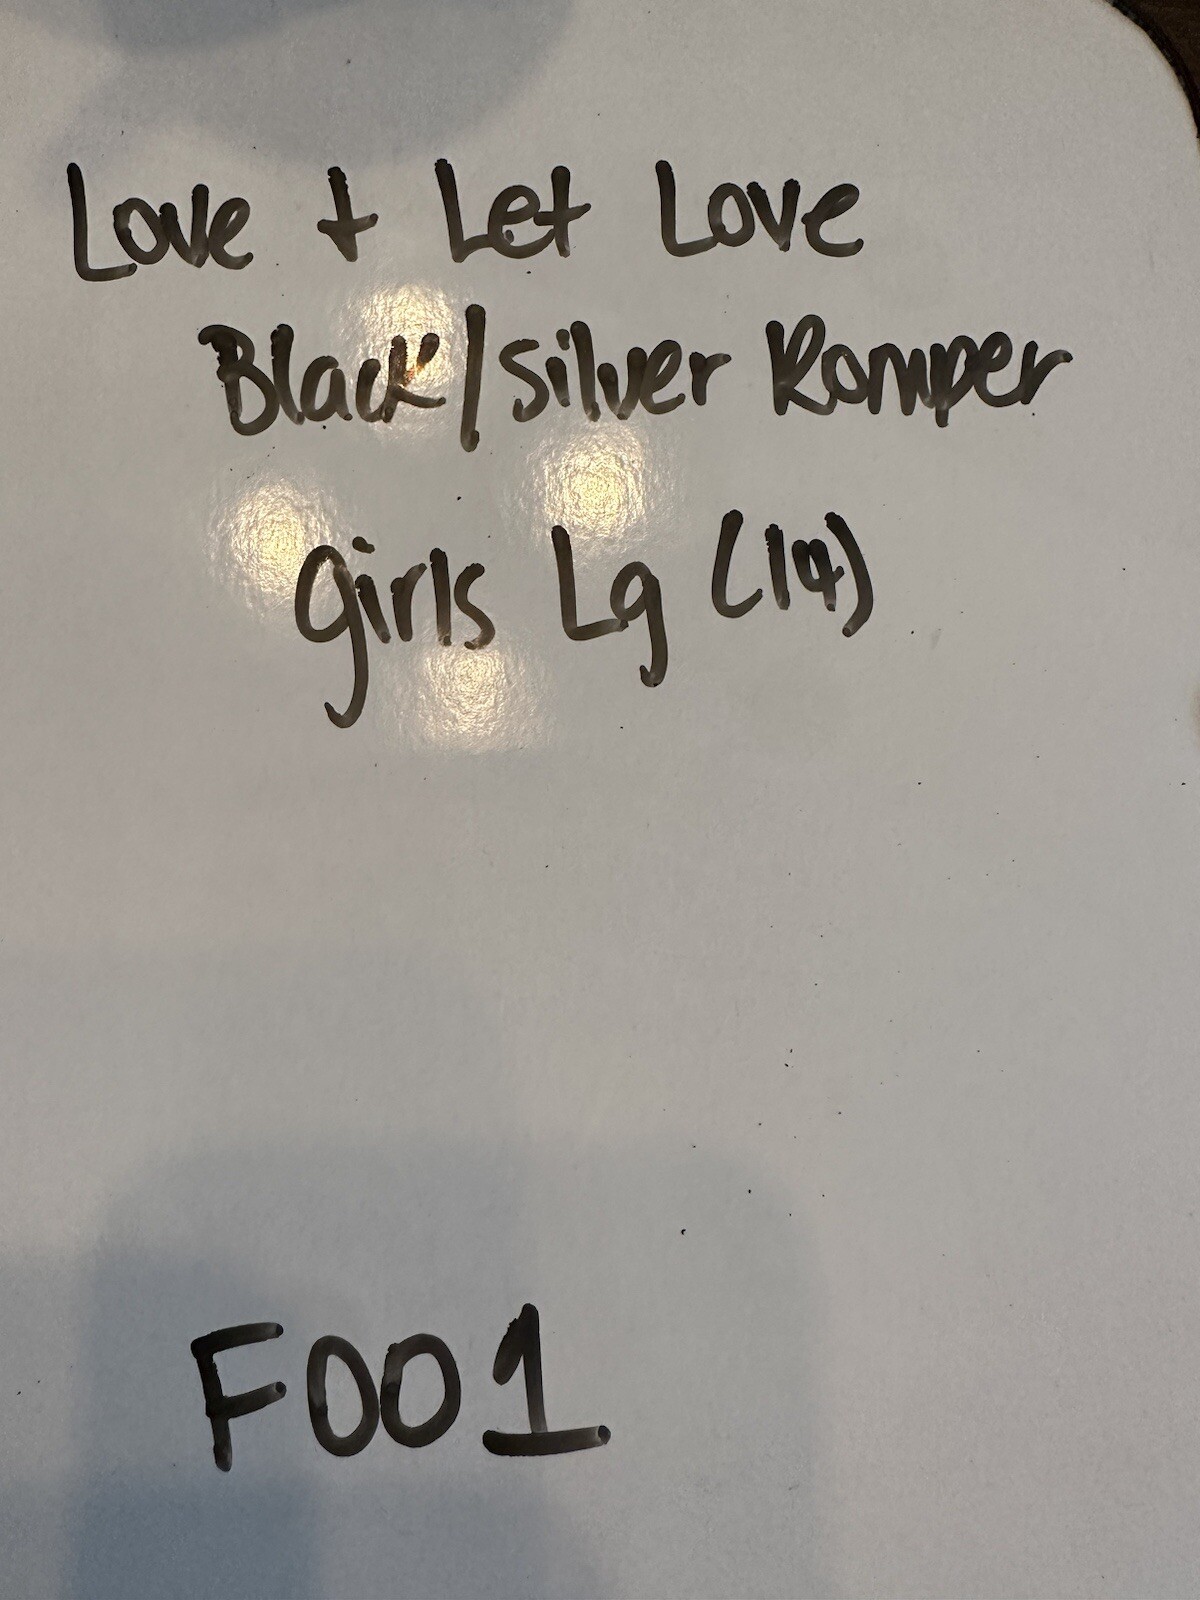 Love + Let Love
Black/Silver Romper
Girls Lg (14)
F001